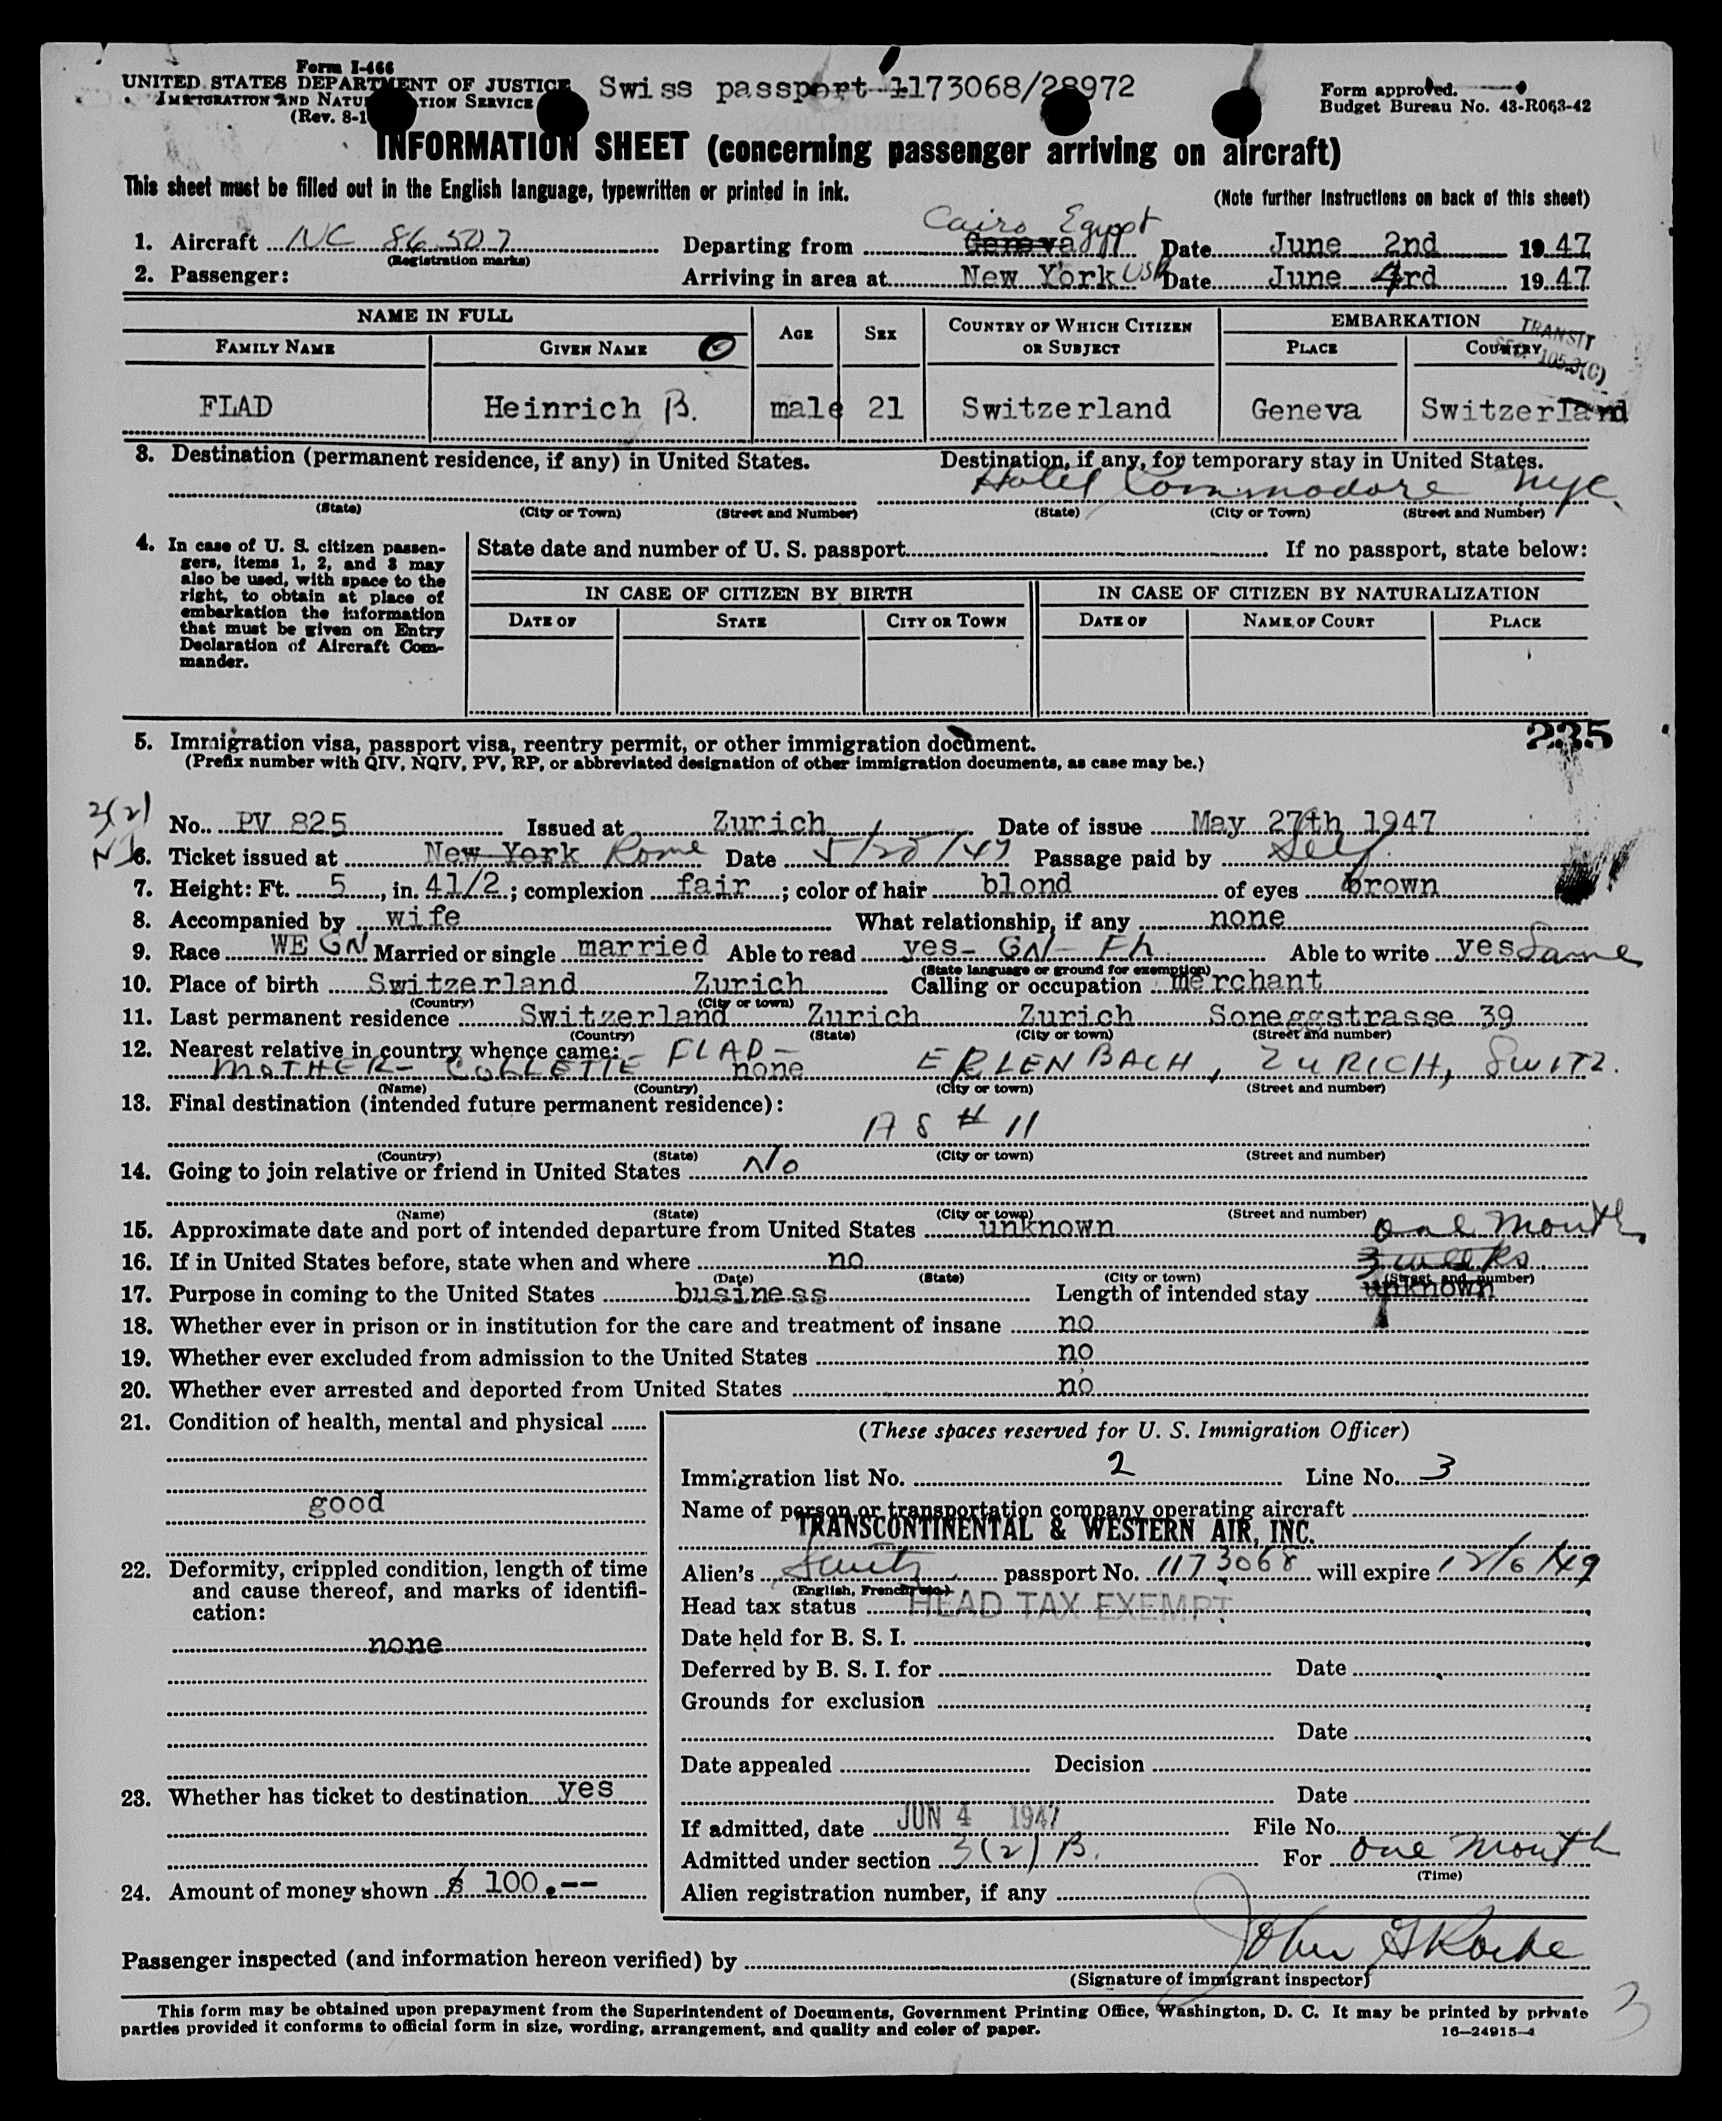 Form I-466
UNITED STATES DEPARTMENT OF JUSTICE Swiss passport 1173068/28972 Form approved.
IMMIGRATION AND NATU TION SERVICE Budget Bureau No. 43-R063-42
(Rev. 8-1
INFORMATION SHEET (concerning passenger arriving on aircraft)
This sheet must be filled out in the English language, typewritten or printed in ink. (Note further instructions on back of this sheet)
Cairo Egypt
1. Aircraft NC 86507 Departing from Geneva Date June 2nd 1947
(Registration marks)
2. Passenger: Arriving in area at New York USA Date June 4rd 1947
NAME IN FULL AGE SEX COUNTRY OF WHICH CITIZEN OR SUBJECT EMBARKATION TRANSIT
FAMILY NAME GIVEN NAME PLACE COUNTRY 105.3(C)
FLAD Heinrich B. male 21 Switzerland Geneva Switzerland
3. Destination (permanent residence, if any) in United States. Destination, if any, for temporary stay in United States.
Hotel Commodore NYC
(State) (City or Town) (Street and Number) (State) (City or Town) (Street and Number)
4. In case of U. S. citizen passen- State date and number of U. S. passport If no passport, state below:
gers, items 1, 2, and 3 may
also be used, with space to the
right, to obtain at place of IN CASE OF CITIZEN BY BIRTH IN CASE OF CITIZEN BY NATURALIZATION
embarkation the information
that must be given on Entry DATE OF STATE CITY OR TOWN DATE OF NAME OF COURT PLACE
Declaration of Aircraft Com-
mander.
235
5. Immigration visa, passport visa, reentry permit, or other immigration document.
(Prefix number with QIV, NQIV, PV, RP, or abbreviated designation of other immigration documents, as case may be.)
3(2)
No. PV 825 Issued at Zurich Date of issue May 27th 1947
6. Ticket issued at New York Rome Date 5/28/47 Passage paid by Self
7. Height: Ft. 5, in. 41/2; complexion fair; color of hair blond of eyes brown
8. Accompanied by wife What relationship, if any none
9. Race WE GN Married or single married Able to read yes- GN- Fh Able to write yes Same
(State language or ground for exemption)
10. Place of birth Switzerland Zurich Calling or occupation merchant
(Country) (City or town)
11. Last permanent residence Switzerland Zurich Zurich Soneggstrasse 39
(Country) (State) (City or town) (Street and number)
12. Nearest relative in country whence came: FLAD-
MOTHER- COLLETTE none ERLENBACH, ZURICH, SWITZ.
(Name) (Country) (City or town) (Street and number)
13. Final destination (intended future permanent residence):
AS # 11
(Country) (State) (City or town) (Street and number)
14. Going to join relative or friend in United States No
(Name) (State) (City or town) (Street and number)
15. Approximate date and port of intended departure from United States unknown one month
16. If in United States before, state when and where no 3 weeks
(Date) (State) (City or town) (Street and number)
17. Purpose in coming to the United States business Length of intended stay unknown
18. Whether ever in prison or in institution for the care and treatment of insane no
19. Whether ever excluded from admission to the United States no
20. Whether ever arrested and deported from United States no
21. Condition of health, mental and physical
good
22. Deformity, crippled condition, length of time
and cause thereof, and marks of identifi-
cation:
none
23. Whether has ticket to destination yes
24. Amount of money shown $ 100.--
(These spaces reserved for U. S. Immigration Officer)
Immigration list No. 2 Line No. 3
Name of person or transportation company operating aircraft
TRANSCONTINENTAL & WESTERN AIR, INC.
Alien's passport No. 1173068 will expire 12/6/49
(English, French, etc.)
Head tax status HEAD TAX EXEMPT
Date held for B. S. I.
Deferred by B. S. I. for Date
Grounds for exclusion
Date
Date appealed Decision
Date
If admitted, date JUN 4 1947 File No.
Admitted under section 3(2) B. For one month
(Time)
Alien registration number, if any
Passenger inspected (and information hereon verified) by John
(Signature of immigrant inspector)
This form may be obtained upon prepayment from the Superintendent of Documents, Government Printing Office, Washington, D. C. It may be printed by private
parties provided it conforms to official form in size, wording, arrangement, and quality and color of paper. 16—24915-4
3